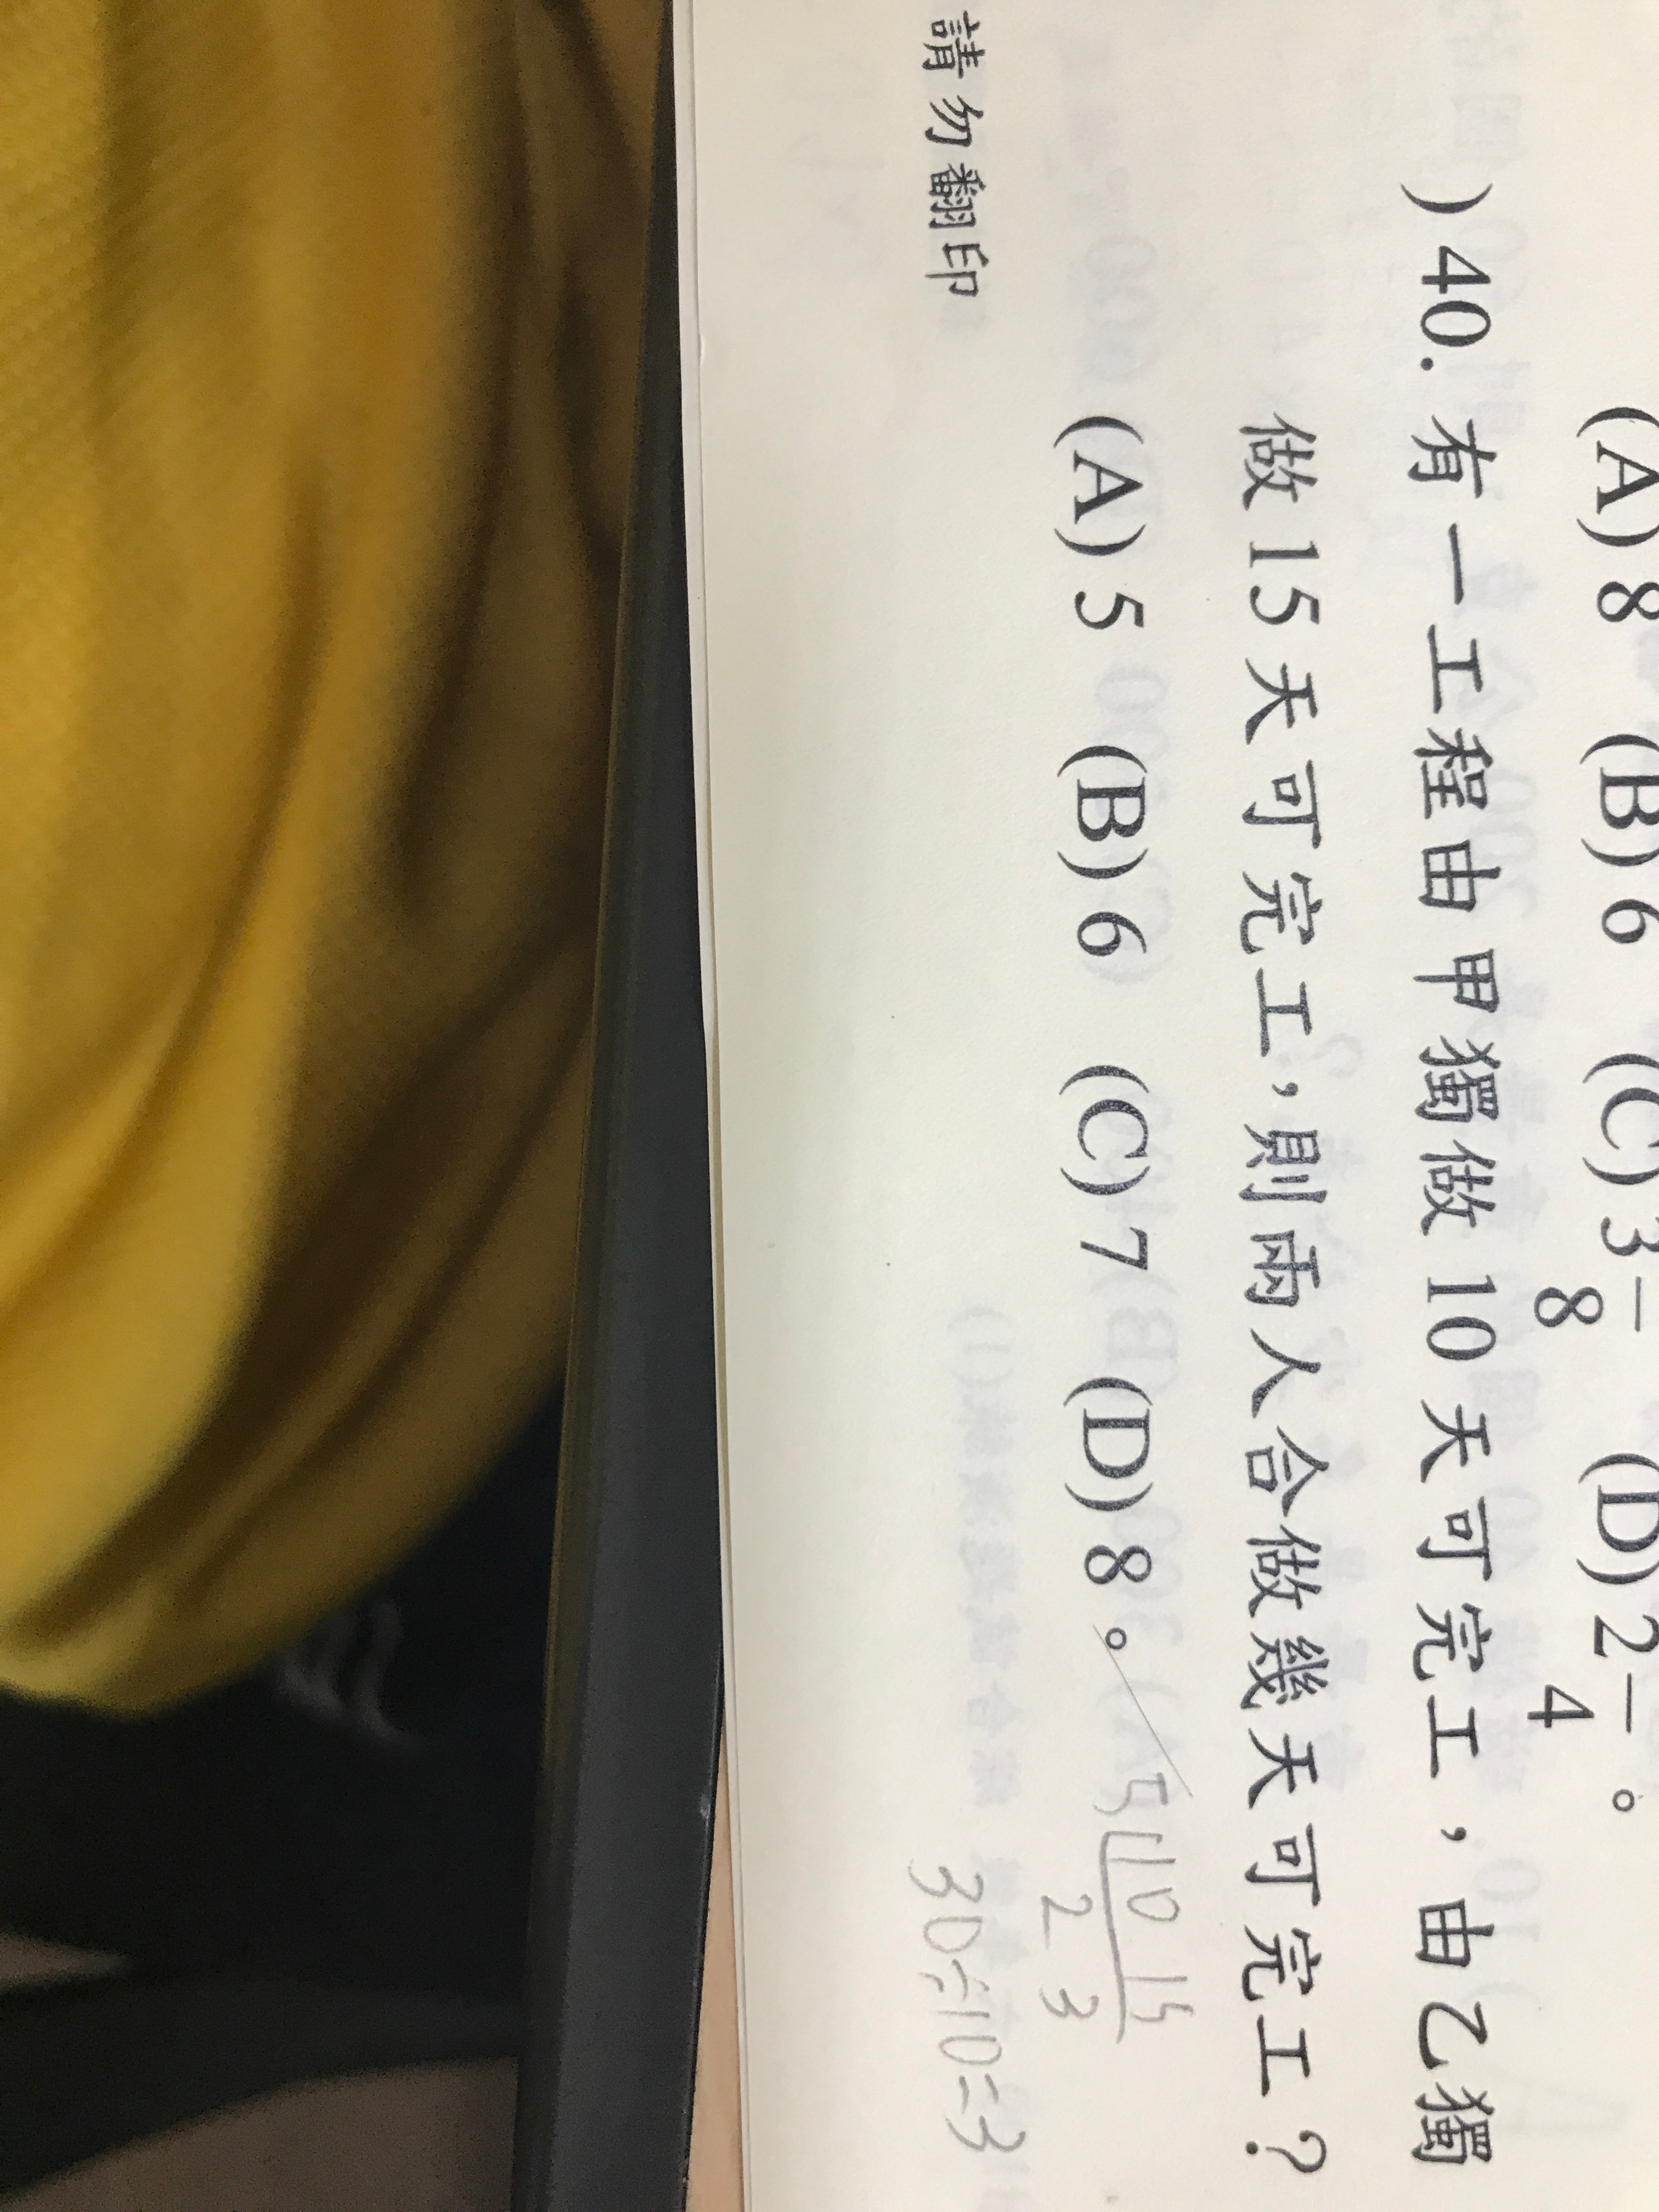 (A) 8 (B) 6 (C) 3—8 (D) 2—4。
) 40. 有一工程由甲獨做 10 天可完工，由乙獨
做 15 天可完工，則兩人合做幾天可完工？
(A) 5 (B) 6 (C) 7 (D) 8。
5 10 15
2 3
30÷10=3
請勿翻印